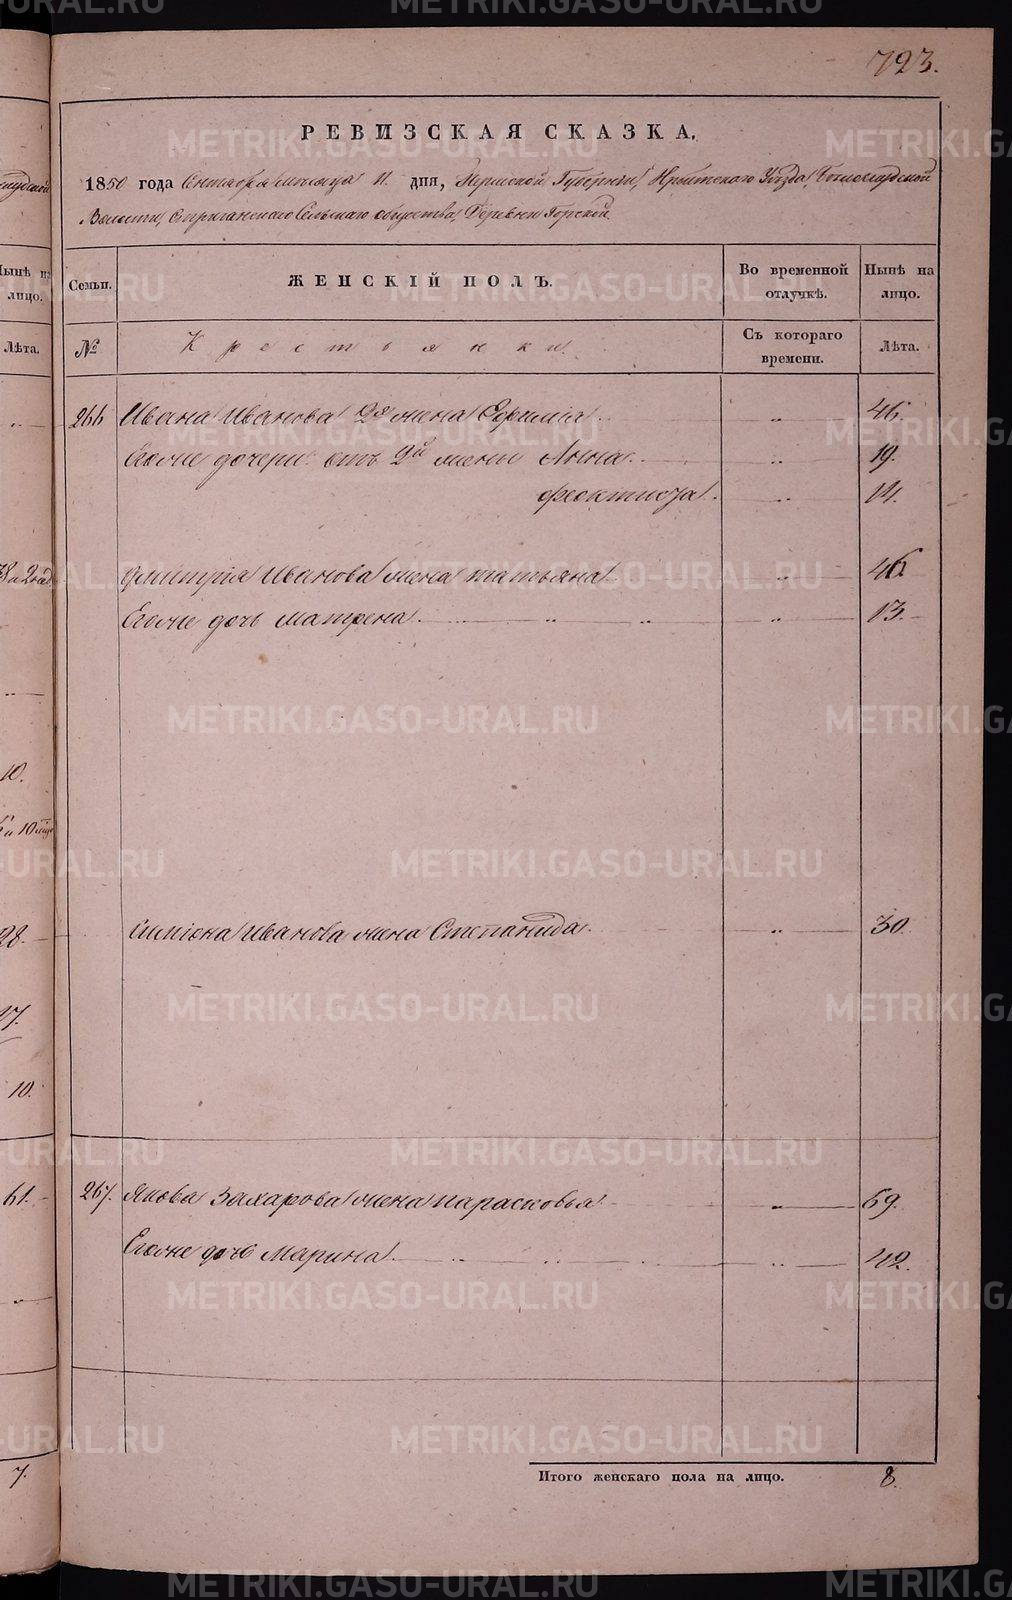 723.
РЕВИЗСКАЯ СКАЗКА.
1850 года Сентября месяца 11. дня, Пермской Губерніи, Ирбитскаго Уѣзда, Белослудской
Волости, Стриганскаго Сельскаго общества, Деревни Горской.
Семьи.
ЖЕНСКІЙ ПОЛЪ.
Во временной отлучкѣ.
Нынѣ на лицо.
№
Крестьянки.
Съ котораго времени.
Лѣта.
266 Ивана Иванова 2я жена Ефимія .. 46.
Егоже дочери отъ 2й жены Анна .. 19.
Феоктиста. .. 14.
Дмитрія Иванова жена Татьяна .. 46.
Егоже дочь Матрена. .. .. .. 13.
Симіона Иванова жена Степанида. .. 30.
267. Якова Захарова жена Парасковья .. 69.
Егоже дочь Марина. .. .. .. .. 42.
Итого женскаго пола на лицо. 8.
Нынѣ на лицо.
Лѣта.
10.
28.
61.
10.
7.
METRIKI.GASO-URAL.RU